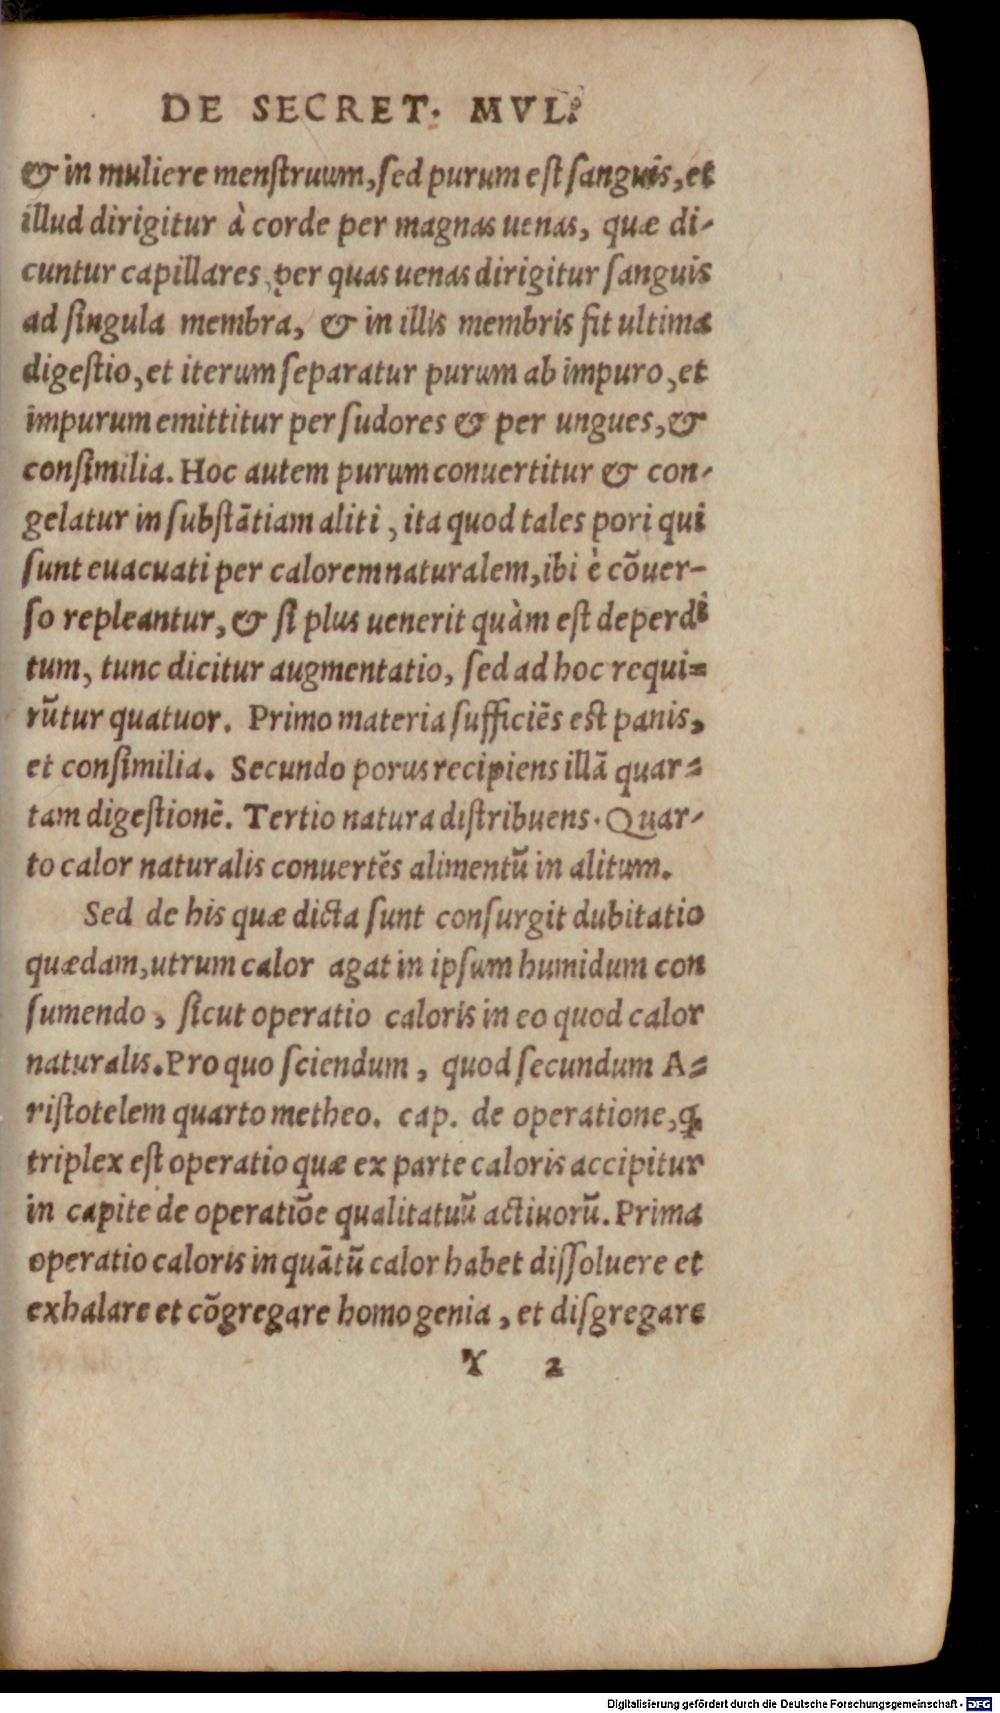 DE SECRET. MVL.
& in muliere menstruum, sed purum est sanguis, et
illud dirigitur à corde per magnas uenas, quæ di-
cuntur capillares, per quas uenas dirigitur sanguis
ad singula membra, & in illis membris fit ultima
digestio, et iterum separatur purum ab impuro, et
impurum emittitur per sudores & per ungues, &
consimilia. Hoc autem purum conuertitur & con-
gelatur in substātiam aliti, ita quod tales pori qui
sunt euacuati per calorem naturalem, ibi è cōuer-
so repleantur, & si plus uenerit quàm est deperdi
tum, tunc dicitur augmentatio, sed ad hoc requi-
rūtur quatuor. Primo materia sufficiēs est panis,
et consimilia. Secundo porus recipiens illā quar-
tam digestionē. Tertio natura distribuens. Quar-
to calor naturalis conuertēs alimentū in alitum.
Sed de his quæ dicta sunt consurgit dubitatio
quædam, utrum calor agat in ipsum humidum con
sumendo, sicut operatio caloris in eo quod calor
naturalis. Pro quo sciendum, quod secundum A-
ristotelem quarto metheo. cap. de operatione, ꝙ
triplex est operatio quæ ex parte caloris accipitur
in capite de operatiōe qualitatuū actiuorū. Prima
operatio caloris in quātū calor habet dissoluere et
exhalare et cōgregare homogenia, et disgregare
Y 2
Digitalisierung gefördert durch die Deutsche Forschungsgemeinschaft - DFG